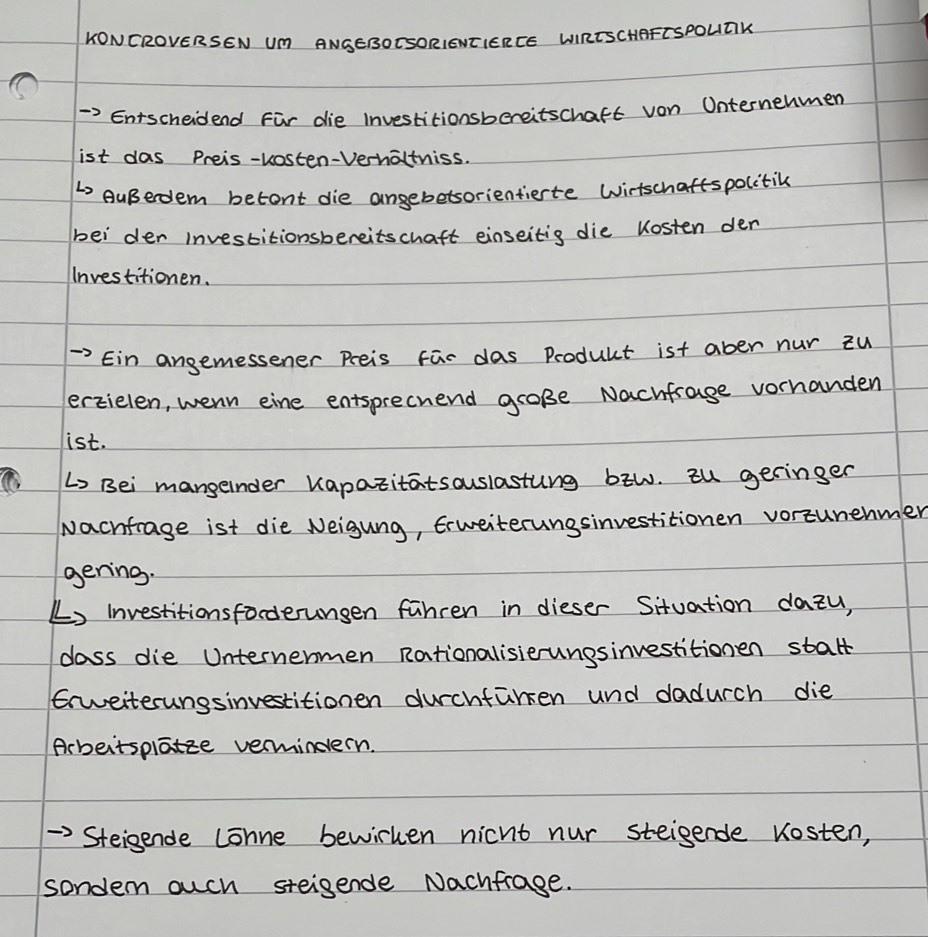 KONTROVERSEN UM ANGEBOTSORIENTIERTE WIRTSCHAFTSPOLITIK
-> Entscheidend für die Investitionsbereitschaft von Unternehmen
ist das Preis-Kosten-Verhältniss.
↳ Außerdem betont die angebotsorientierte Wirtschaftspolitik
bei der Investitionsbereitschaft einseitig die Kosten der
Investitionen.
-> Ein angemessener Preis für das Produkt ist aber nur zu
erzielen, wenn eine entsprechend große Nachfrage vorhanden
ist.
↳ Bei mangelnder Kapazitätsauslastung bzw. zu geringer
Nachfrage ist die Neigung, Erweiterungsinvestitionen vorzunehmen
gering.
↳ Investitionsförderungen führen in dieser Situation dazu,
dass die Unternehmen Rationalisierungsinvestitionen statt
Erweiterungsinvestitionen durchführen und dadurch die
Arbeitsplätze vermindern.
-> Steigende Löhne bewirken nicht nur steigende Kosten,
sondern auch steigende Nachfrage.